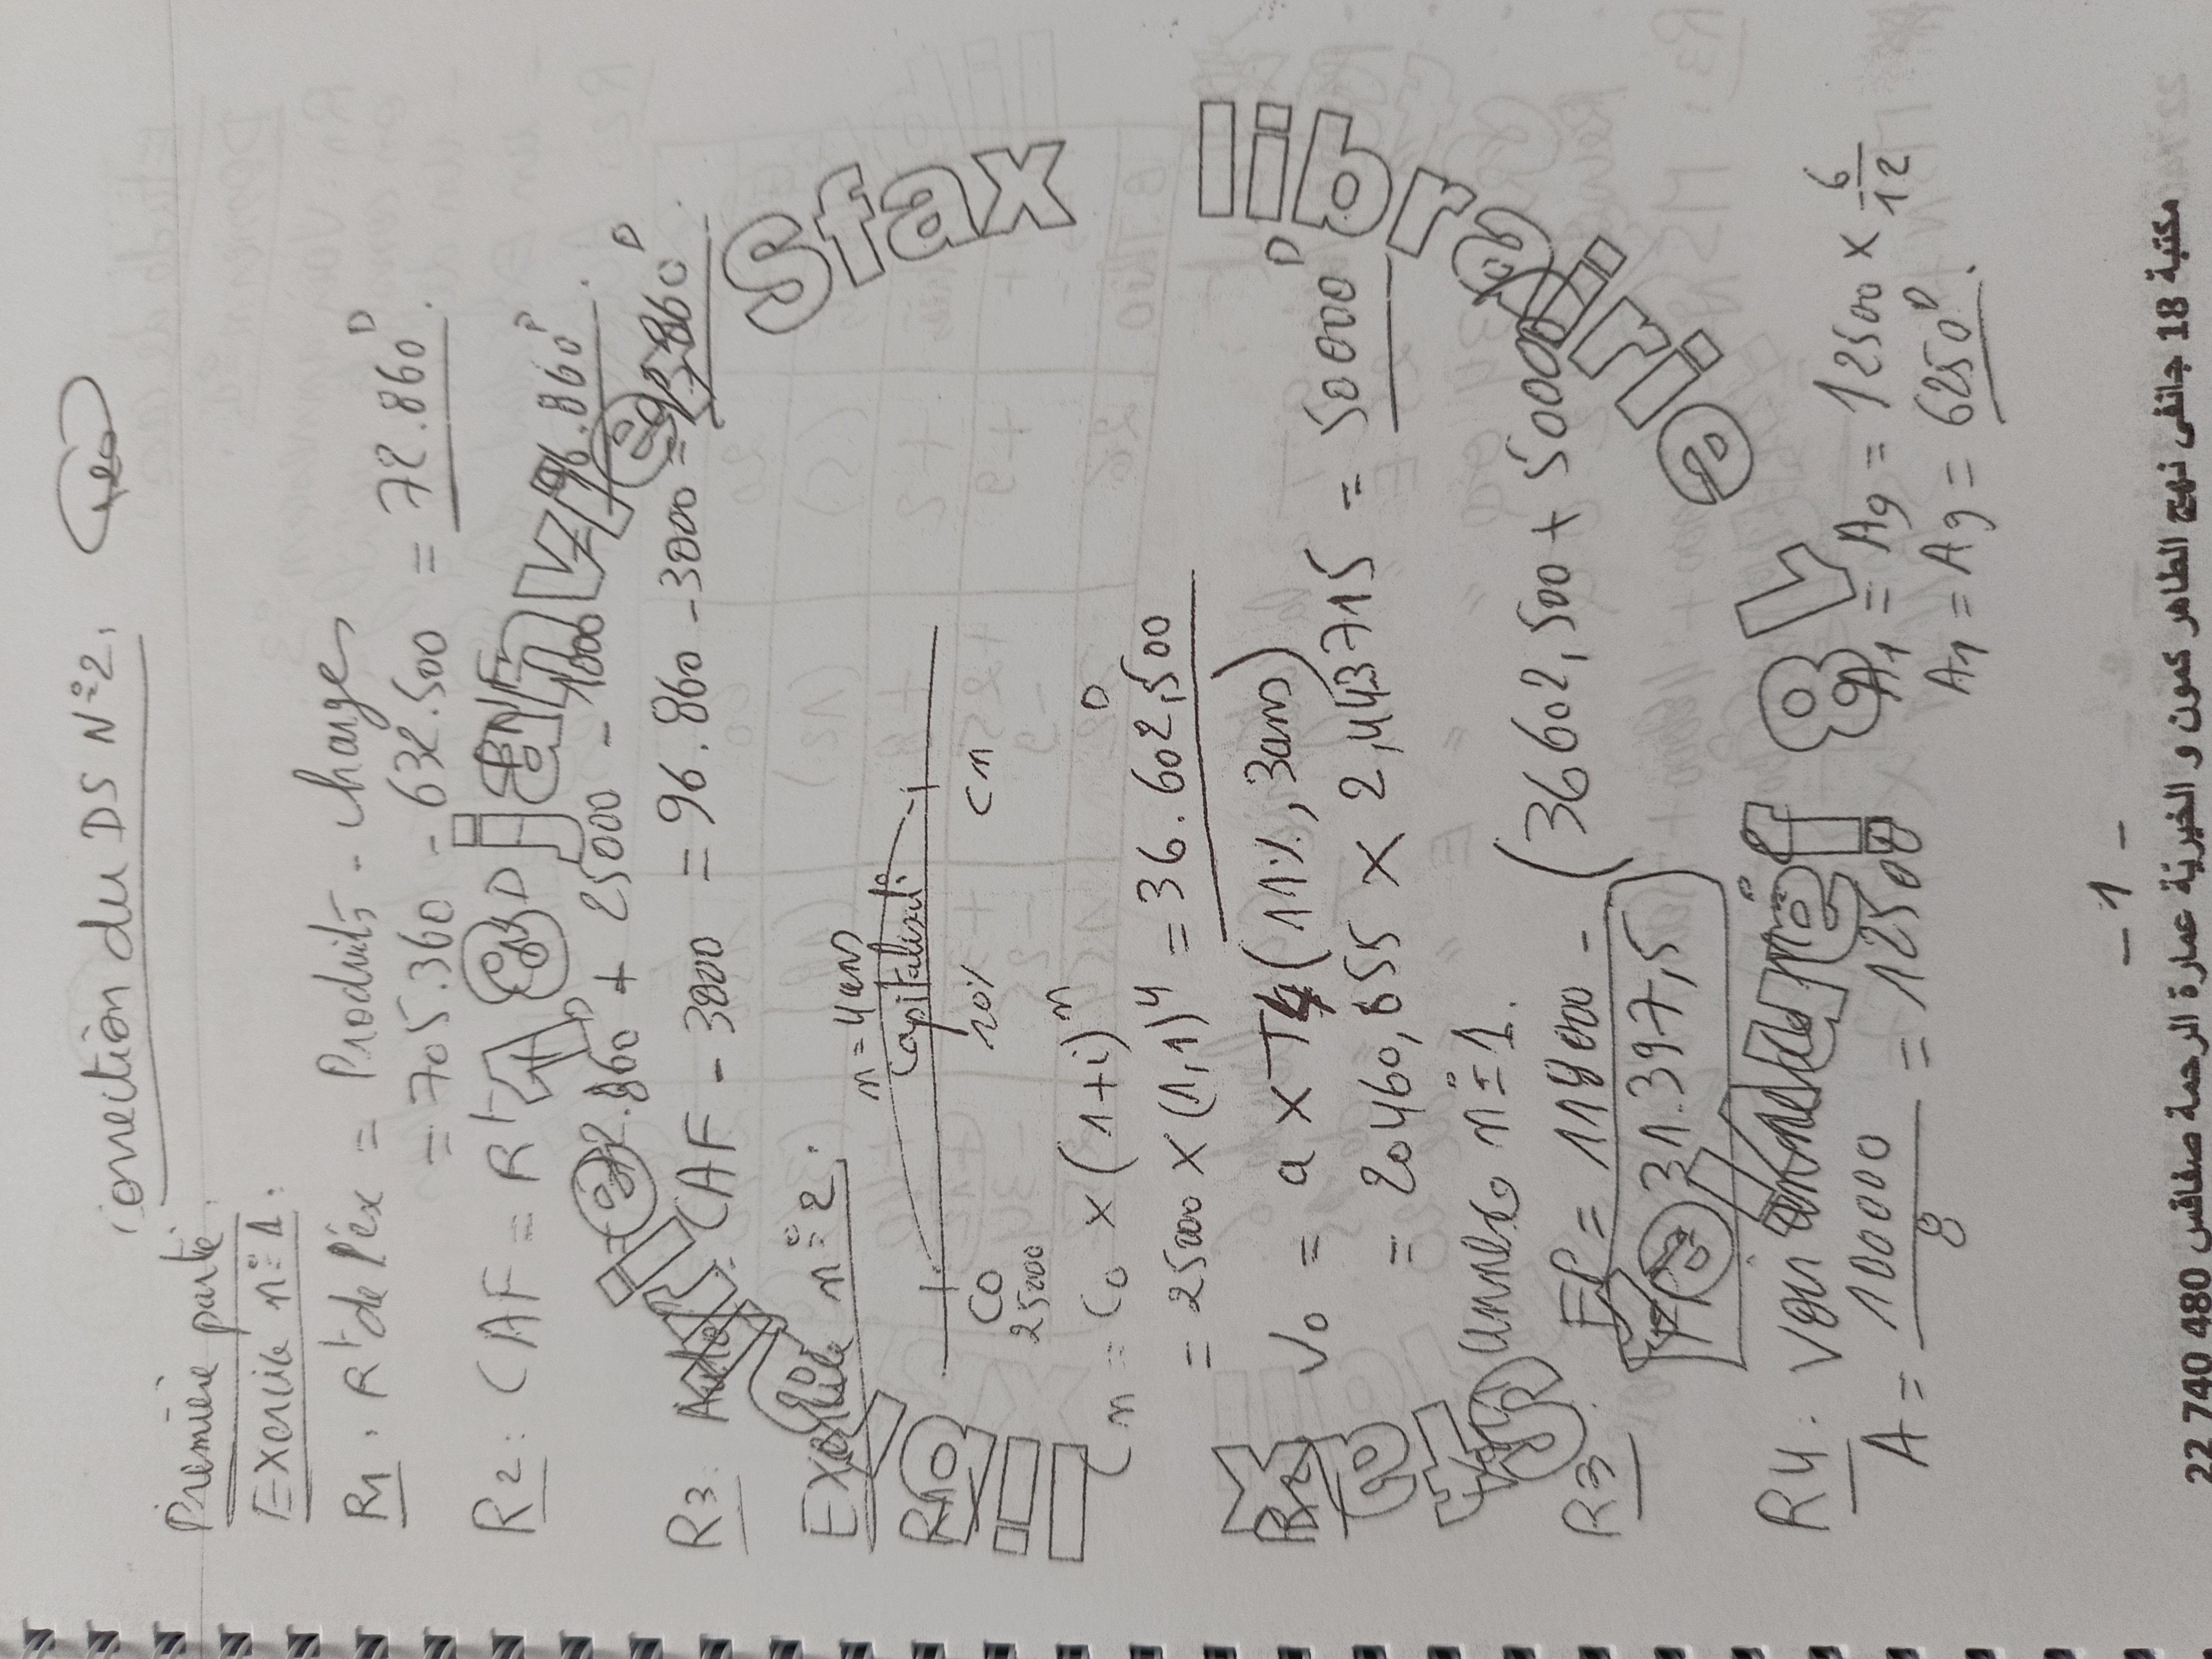 correction du DS N°2.
Première partie.
Exercice n°1:
R1. Rt de l'ex = Produits - charges
= 705.360 - 632.500 = 72.860D.
R2: CAF = Rt + DAP
72.860 + 25000 - 1000 = 96.860D.
R3: CAF - 3000 = 96.860 - 3000 = 93.860D.
Exercice n°2.
n = 4 ans
capitalisat°
C0 10% Cn
25000
Cn = C0 x (1+i)n
= 25000 x (1,1)4 = 36.602,500D
R2 V0 = a x T4 (11%, 3 ans)
= 20460,655 x 2,443715 = 50000D
année n°1.
R3 EP = 118000 - (36602,500 + 50000)
EP = 31.397,5
R4:
A = 100000 / 8 = 12500
A1 = A9 = 12500 x 6/12
A1 = A9 = 6250D.
- 1 -
مكتبة 18 جانفي نهج الطاهر كمون و الخيرية عمارة الرحمة صفاقس 22 740 480
Sfax librairie 8